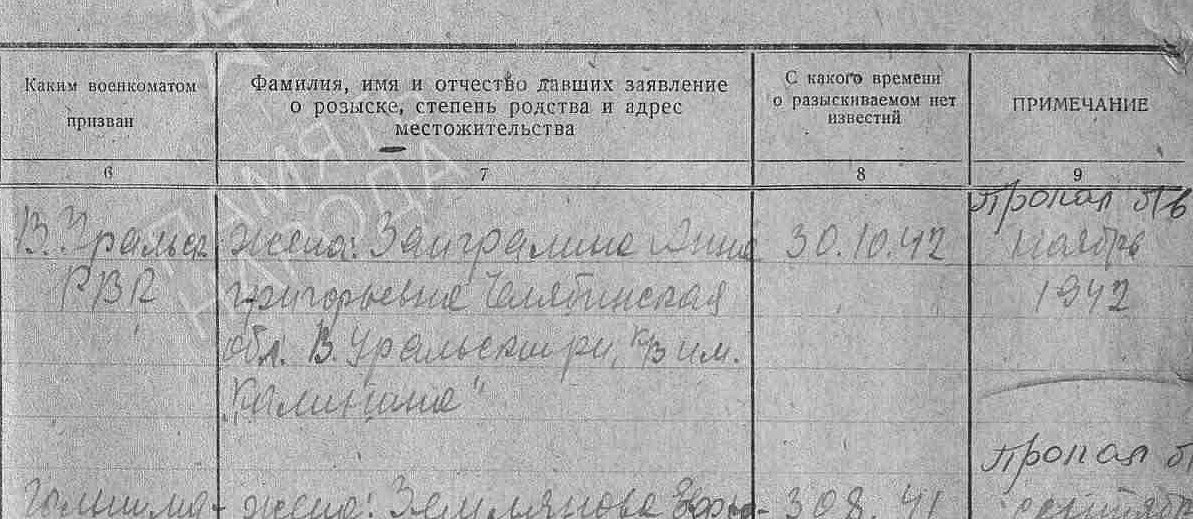 ПАМЯТЬ НАРОДА
Каким военкоматом призван
Фамилия, имя и отчество давших заявление
о розыске, степень родства и адрес
местожительства
С какого времени
о разыскиваемом нет
известий
ПРИМЕЧАНИЕ
6
7
8
9
В. Уральск.
РВК
жена: Заигралина Анна
Григорьевна Челябинская
обл. В. Уральский р-н, к/з им.
"Калинина"
30.10.42
Пропал
Ноябрь
1942
жена: Землянова
30 8. 41
Пропал